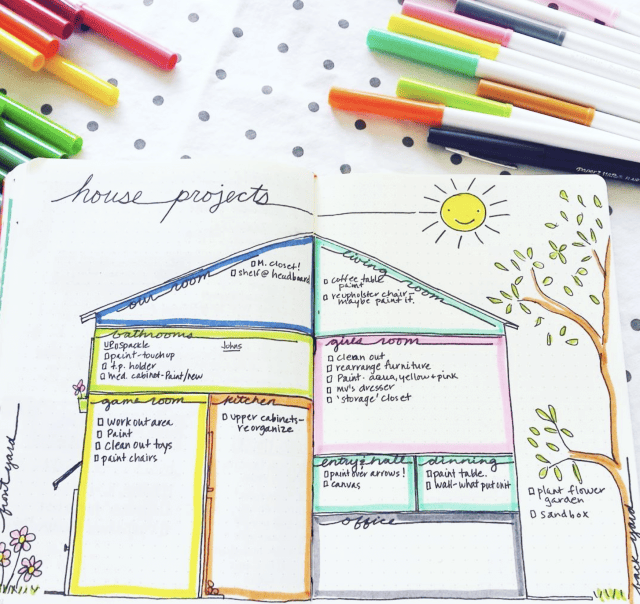 house projects
our room
□ M. closet!
□ shelf @ headboard
living room
□ coffee table
paint
□ reupholster chair-
maybe paint it.
bathrooms
UP □ spackle
Johns
□ paint-touchup
□ t.p. holder
□ med. cabinet-Paint/new
girls room
□ clean out
□ rearrange furniture
□ Paint-aqua, yellow+pink
□ mv's dresser
□ 'storage' closet
game room
□ work out area
□ Paint
□ Clean out toys
□ paint chairs
kitchen
□ upper cabinets-
re organize
entry & hall
□ paint over arrows!
□ canvas
dinning
□ paint table.
□ wall-what put on it
office
front yard
□ plant flower
garden
□ sandbox
back yard